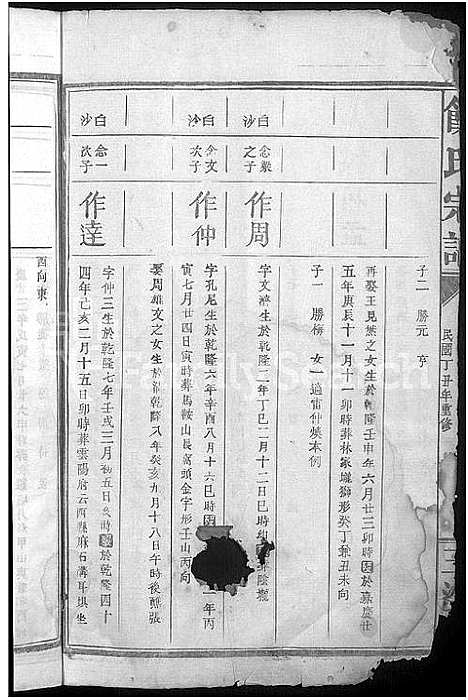 氏宗譜
民國丁丑年重修
子二 勝元 亨
再娶王見葵之女生於乾隆壬申年六月廿三卯時歿於嘉慶廿
五年庚辰十一月十一卯時葬林家壠獅形癸丁兼丑未向
子一 勝梅 女一適雷仲煥本例
白沙
念嚴之子
作周
字文濟生於乾隆二年丁巳二月十二日巳時
白沙
念文次子
作仲
字孔尼生於乾隆六年辛酉八月十六巳時歿 一年丙
寅七月廿四日寅時葬馬鞍山長窩頭金字形壬山丙向
娶周雄文之女生於乾隆八年癸亥九月十八日午時後醮張
白沙
念一次子
作達
字仲三生於乾隆七年壬戌三月初五日亥時歿於乾隆四十
四年己亥二月十五日卯時葬雲陽府云西縣麻石溝耳垻坐
酉向東